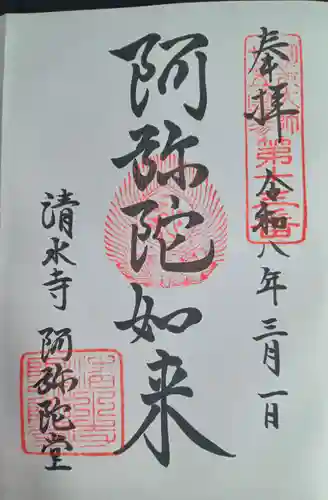 奉拝
令和八年三月一日
阿弥陀如来
清水寺 阿弥陀堂